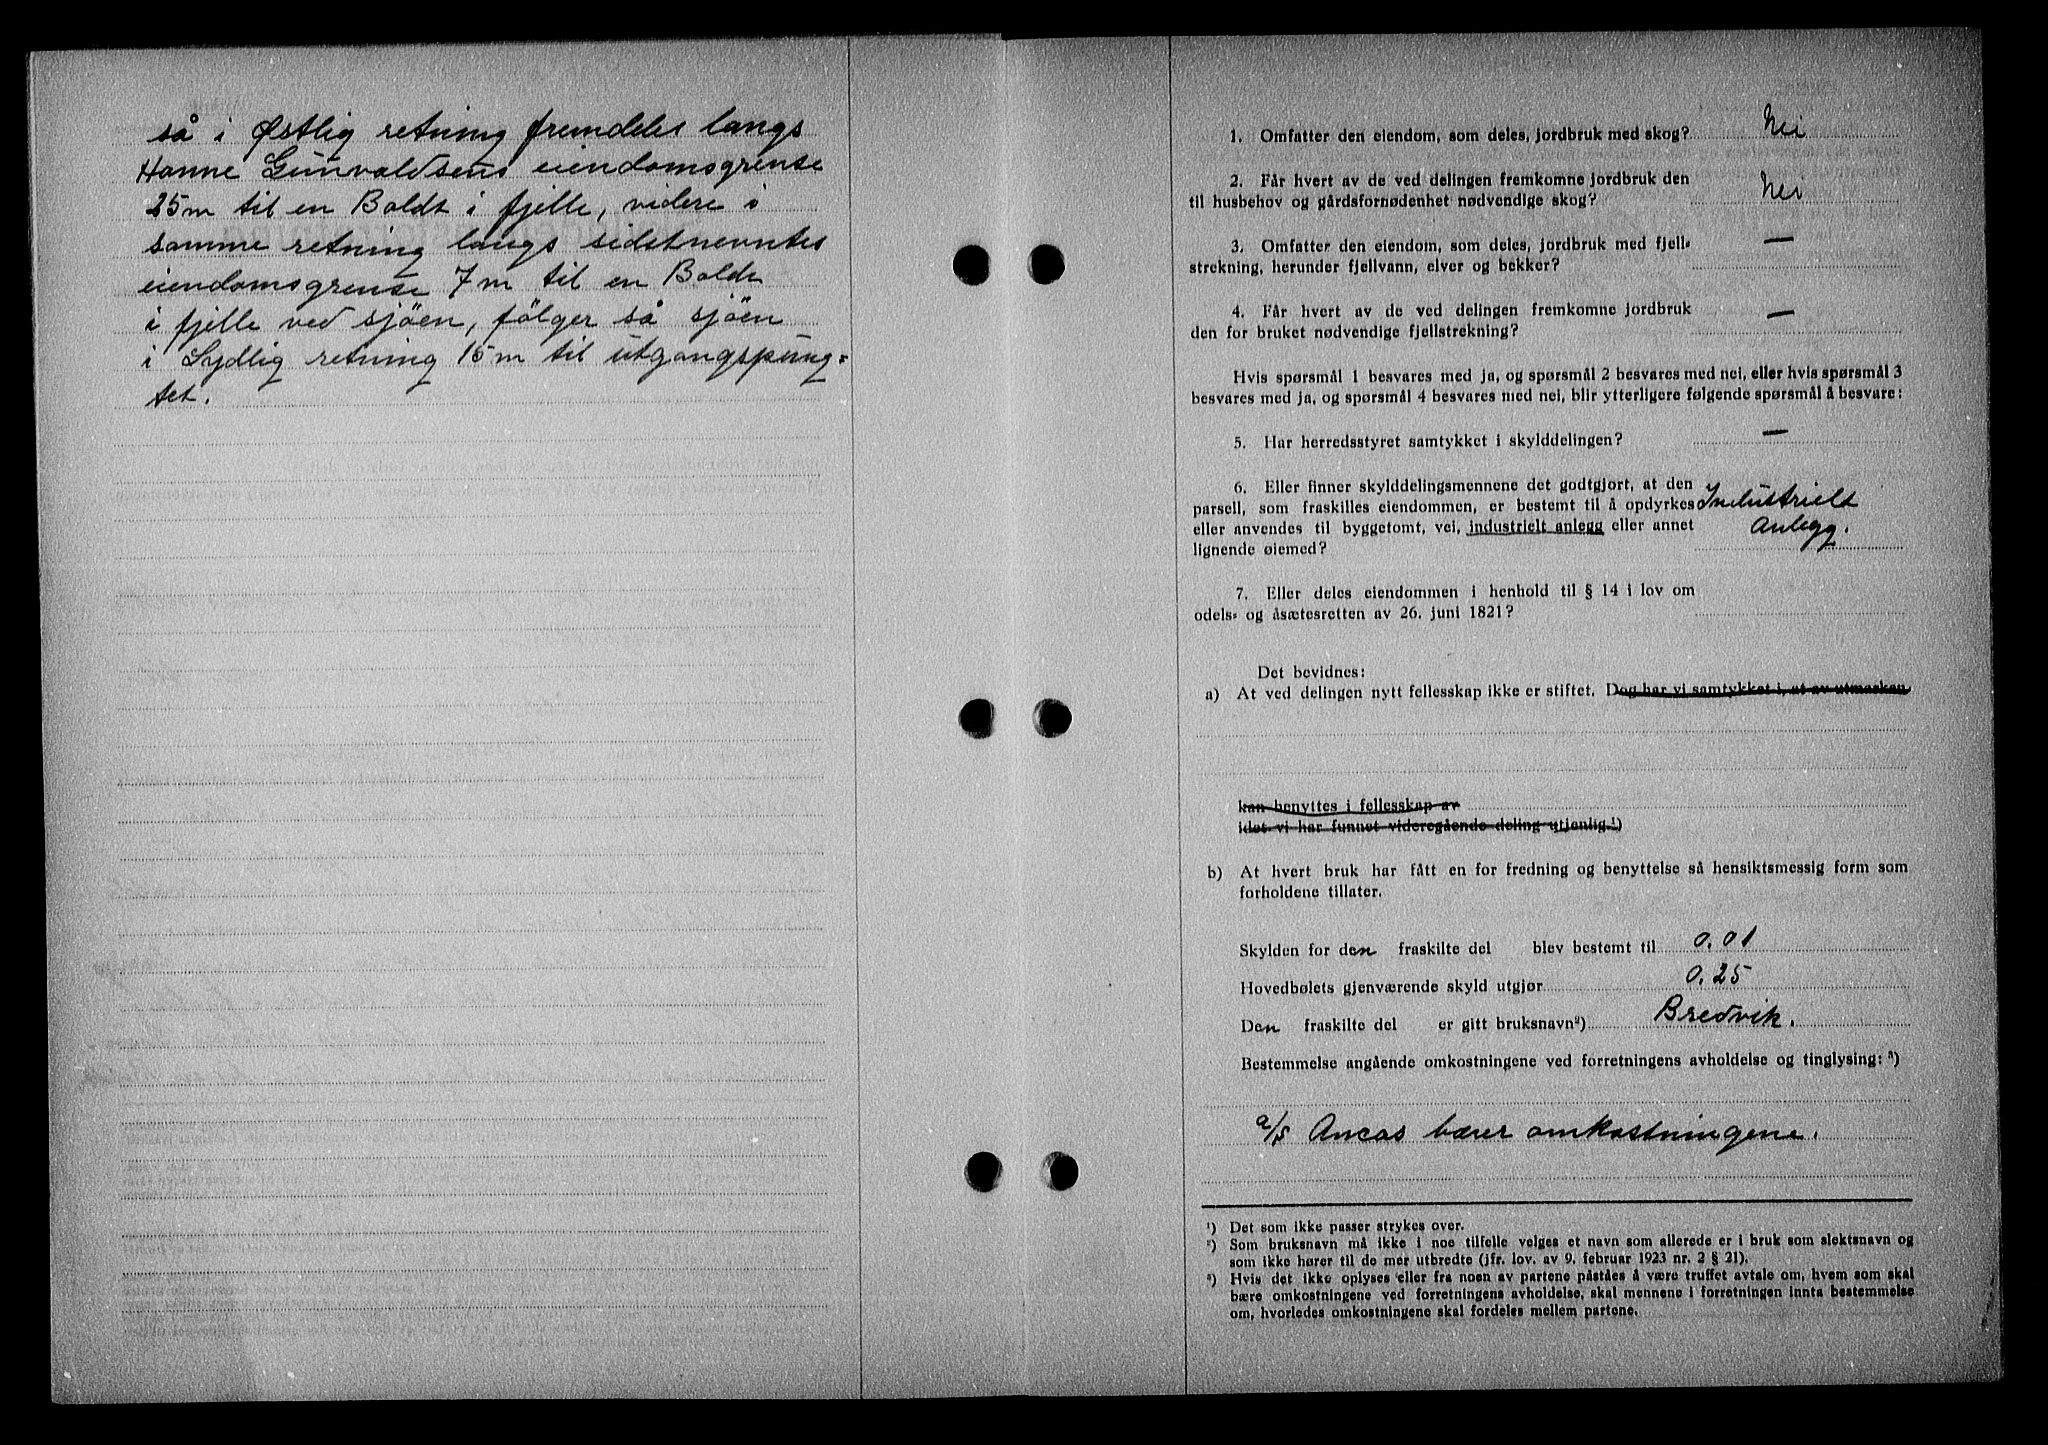 så i Østlig retning fremdeles langs
Hanne Gunvaldsens eiendomsgrense
25m til en Boldt i fjelle, videre i
samme retning langs sidstnevntes
eiendomsgrense 7m til en Boldt
i fjelle ved sjöen, fölger så sjöen
i Sydlig retning 15m til utgangspung-
tet.
1. Omfatter den eiendom, som deles, jordbruk med skog? Nei
2. Får hvert av de ved delingen fremkomne jordbruk den
til husbehov og gårdsfornødenhet nødvendige skog? Nei
3. Omfatter den eiendom, som deles, jordbruk med fjell-
strekning, herunder fjellvann, elver og bekker? —
4. Får hvert av de ved delingen fremkomne jordbruk
den for bruket nødvendige fjellstrekning? —
Hvis spørsmål 1 besvares med ja, og spørsmål 2 besvares med nei, eller hvis spørsmål 3
besvares med ja, og spørsmål 4 besvares med nei, blir ytterligere følgende spørsmål å besvare:
5. Har herredsstyret samtykket i skylddelingen? —
6. Eller finner skylddelingsmennene det godtgjort, at den
parsell, som fraskilles eiendommen, er bestemt til å opdyrkes Industrielt
eller anvendes til byggetomt, vei, industrielt anlegg eller annet Anlegg.
lignende øiemed?
7. Eller deles eiendommen i henhold til § 14 i lov om
odels- og åsætesretten av 26. juni 1821?
Det bevidnes:
a) At ved delingen nytt fellesskap ikke er stiftet. Dog har vi samtykket i, at av utmarken
kan benyttes i fellesskap av
idet vi har funnet videregående deling utjenlig.¹)
b) At hvert bruk har fått en for fredning og benyttelse så hensiktsmessig form som
forholdene tillater.
Skylden for den fraskilte del blev bestemt til 0.01
Hovedbølets gjenværende skyld utgjør 0.25
Den fraskilte del er gitt bruksnavn²) Bredvik.
Bestemmelse angående omkostningene ved forretningens avholdelse og tinglysing: ³)
a/s Ancas bærer omkostningene.
¹) Det som ikke passer strykes over.
²) Som bruksnavn må ikke i noe tilfelle velges et navn som allerede er i bruk som slektsnavn og
som ikke hører til de mer utbredte (jfr. lov. av 9. februar 1923 nr. 2 § 21).
³) Hvis det ikke oplyses eller fra noen av partene påståes å være truffet avtale om, hvem som skal
bære omkostningene ved forretningens avholdelse, skal mennene i forretningen innta bestemmelse
om, hvorledes omkostningene skal fordeles mellem partene.